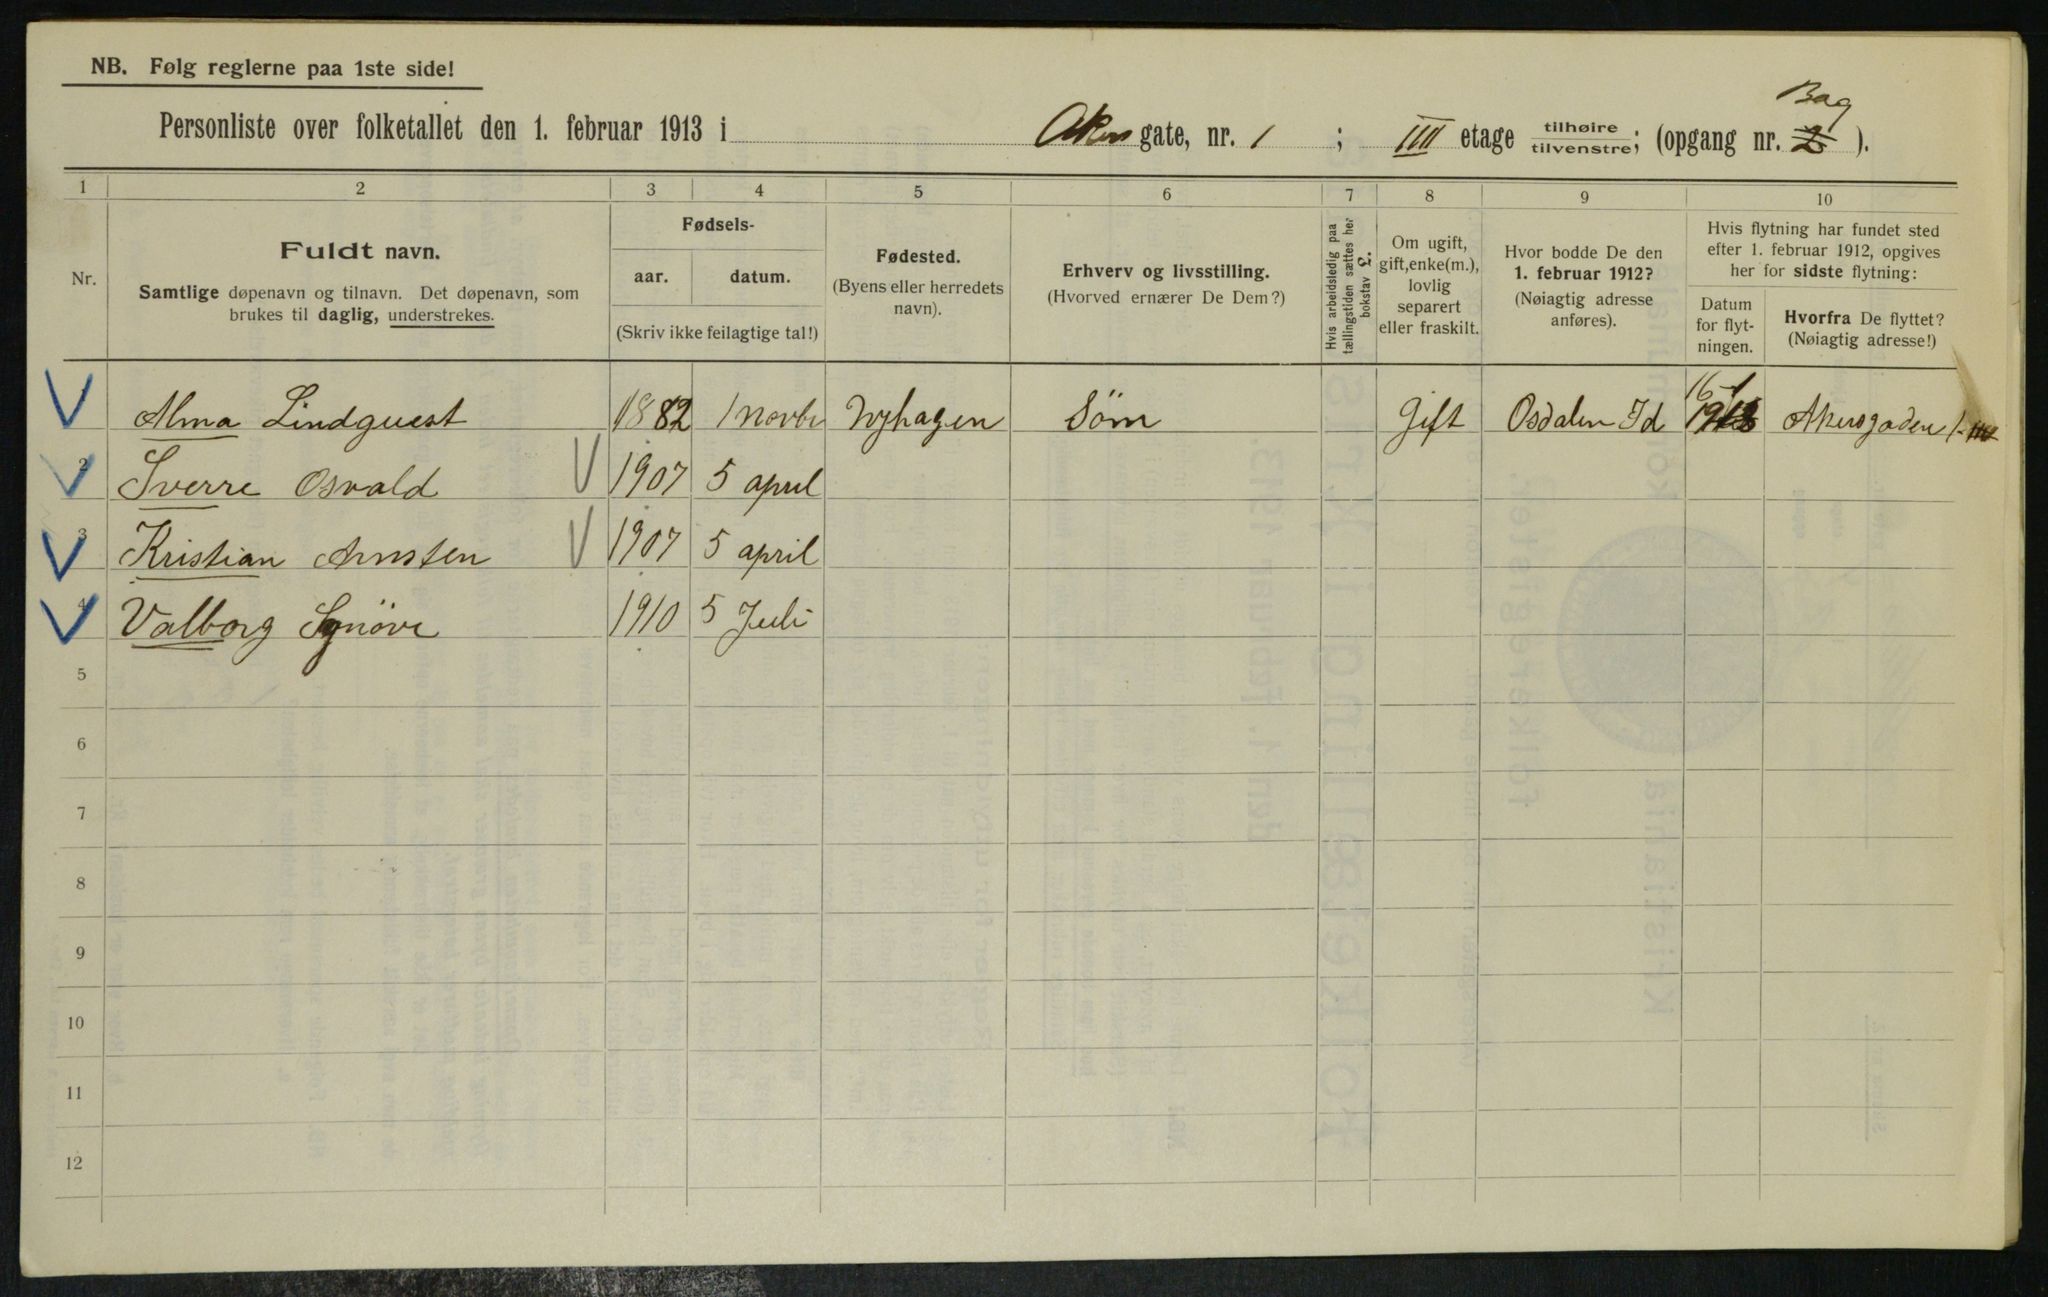 NB. Følg reglerne paa 1ste side!
Bag
Personliste over folketallet den 1. februar 1913 i Akers gate, nr. 1 ; IIII etage tilhøire tilvenstre; (opgang nr. 2 ).
1 2 3 4 5 6 7 8 9 10
Nr.
Fuldt navn.
Samtlige døpenavn og tilnavn. Det døpenavn, som
brukes til daglig, understrekes.
Fødsels-
aar. datum.
(Skriv ikke feilagtige tal!)
Fødested.
(Byens eller herredets
navn).
Erhverv og livsstilling.
(Hvorved ernærer De Dem?)
Hvis arbeidsledig paa
tællingstiden sættes her
bokstav L.
Om ugift,
gift, enke(m.),
lovlig
separert
eller fraskilt.
Hvor bodde De den
1. februar 1912?
(Nøiagtig adresse
anføres).
Hvis flytning har fundet sted
efter 1. februar 1912, opgives
her for sidste flytning:
Datum
for flyt-
ningen.
Hvorfra De flyttet?
(Nøiagtig adresse!)
1 Alma Lindquest 1882 1 Novbr Nyhagen Söm Gift Osdalen Id 16-1 Akersgaden 1
2 Sverre Osvald 1907 5 april
3 Kristian Arnsten 1907 5 april
4 Valborg Synöve 1910 5 Juli
5
6
7
8
9
10
11
12